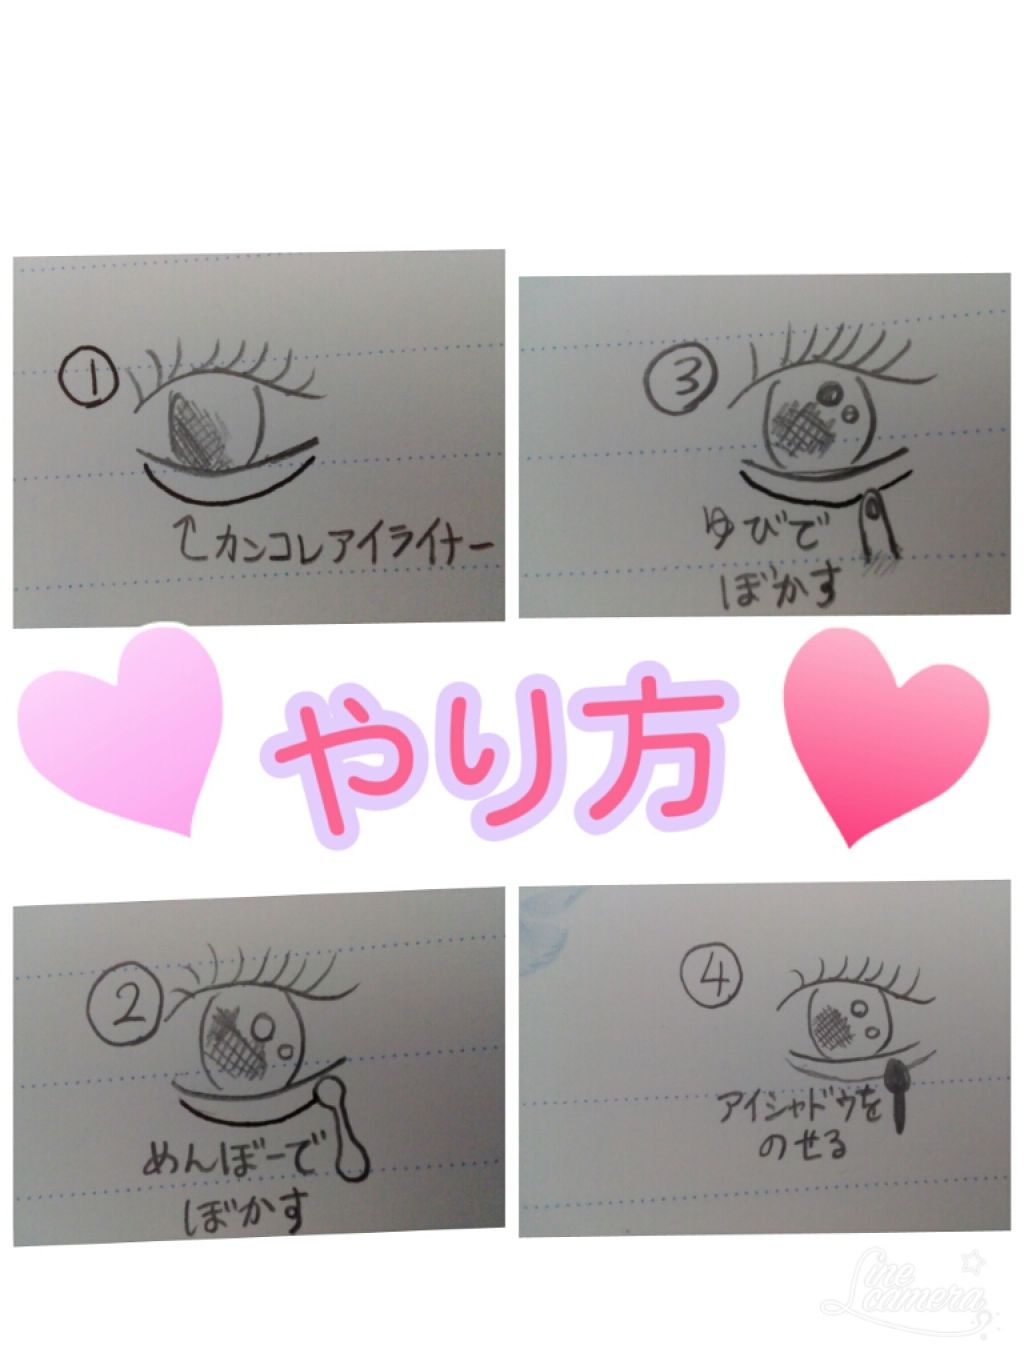 ①
カンコレアイライナー
③
ゆびで
ぼかす
やり方
②
めんぼーで
ぼかす
④
アイシャドウを
のせる
Line
camera